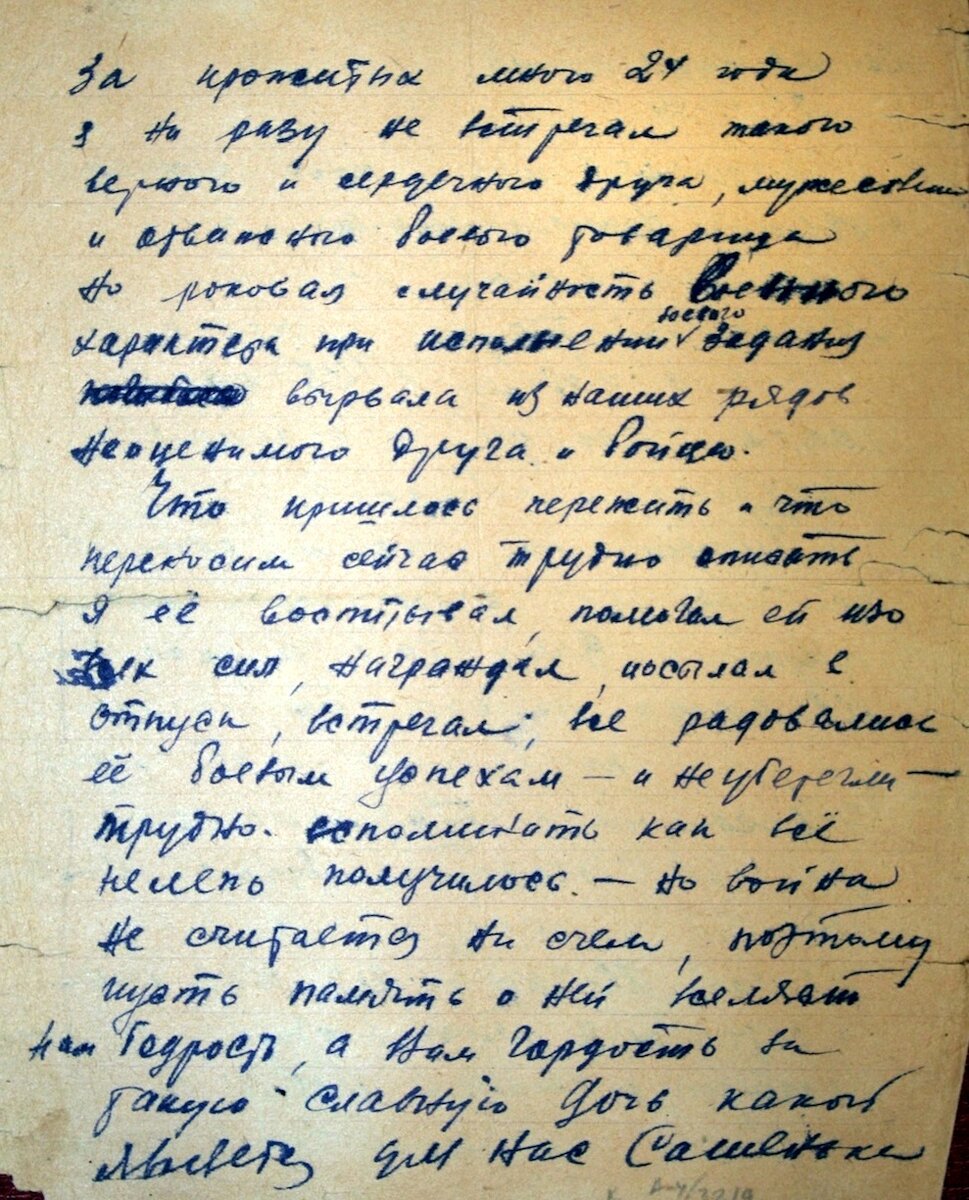 За прожитых мною 24 года
я ни разу не встречал такого
верного и сердечного друга, мужественн
и отважного боевого товарища
Но роковая случайность военного
характера при исполнении боевого задания
вырвала из наших рядов
неоценимого друга и бойца.
Что пришлось пережить и что
переносим сейчас трудно описать
Я её воспитывал, помогал ей изо
всех сил, награждал, посылал в
отпуск, встречал, все радовались
её боевым успехам – и не уберегли –
трудно. вспоминать как всё
нелепо получилось. – Но война
не считается ни с чем, поэтому
пусть память о ней вселяет
нам бодрость, а Вам гордость за
такую славную дочь какой
является для нас Сашенька